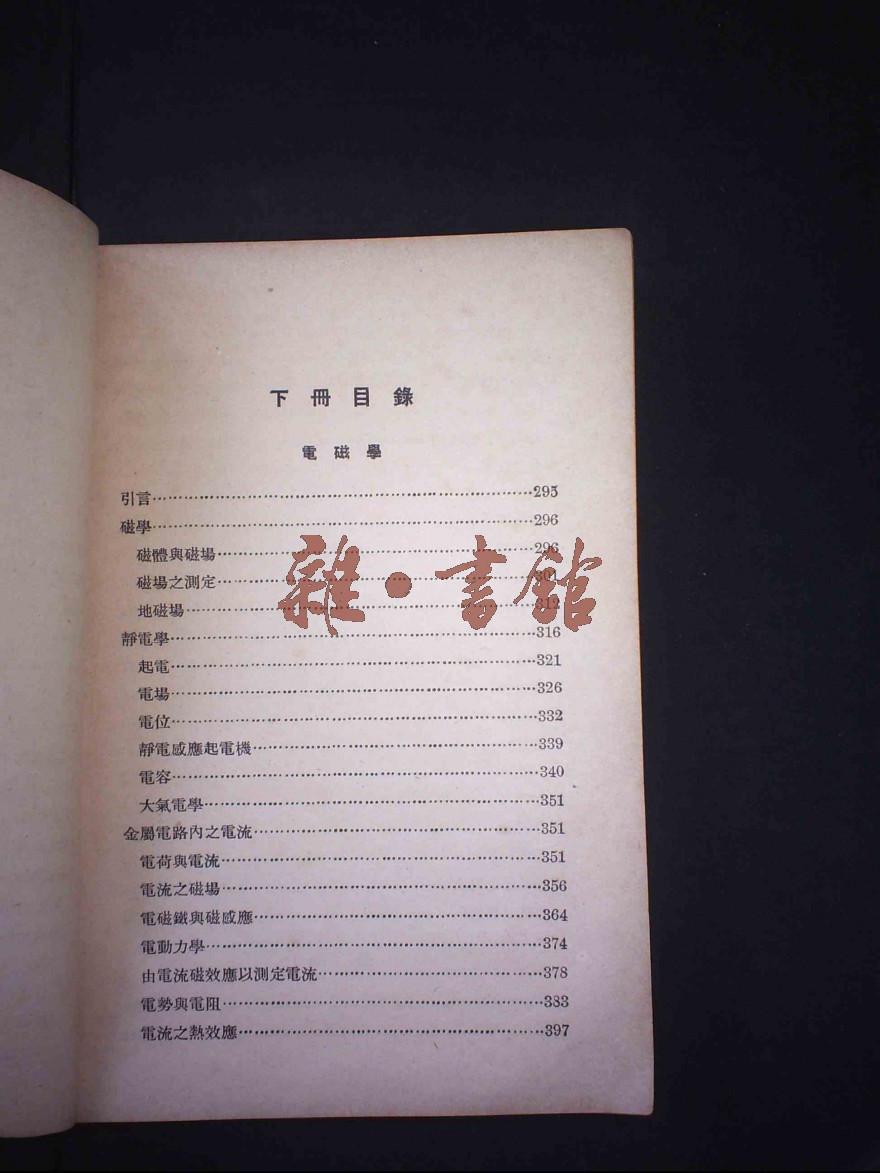 下冊目錄
電磁學
引言……295
磁學……296
磁體與磁場……296
磁場之測定……301
地磁場……312
靜電學……316
起電……321
電場……326
電位……332
靜電感應起電機……339
電容……340
大氣電學……351
金屬電路內之電流……351
電荷與電流……351
電流之磁場……356
電磁鐵與磁感應……364
電動力學……374
由電流磁效應以測定電流……378
電勢與電阻……383
電流之熱效應……397
雜·書館